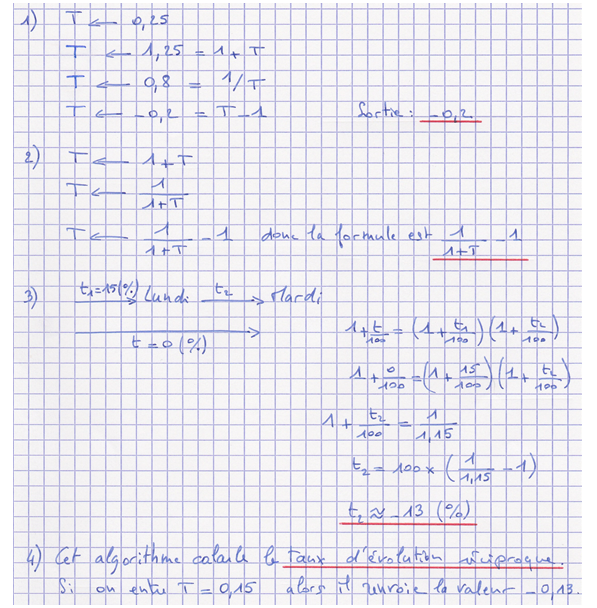 1) T ← 0,25
T ← 1,25 = 1+T
T ← 0,8 = 1/T
T ← -0,2 = T-1 Sortie : -0,2
2) T ← 1+T
T ← 1/(1+T)
T ← 1/(1+T) - 1 donc la formule est 1/(1+T) - 1
3) t₁=15(%) Lundi t₂ Mardi
t = 0 (%)
1+t/100 = (1+t₁/100)(1+t₂/100)
1+0/100 = (1+15/100)(1+t₂/100)
1+t₂/100 = 1/1,15
t₂ = 100×(1/1,15 - 1)
t₂ ≈ -13 (%)
4) Cet algorithme calcule le taux d'évolution réciproque.
Si on entre T = 0,15 alors il renvoie la valeur -0,13.